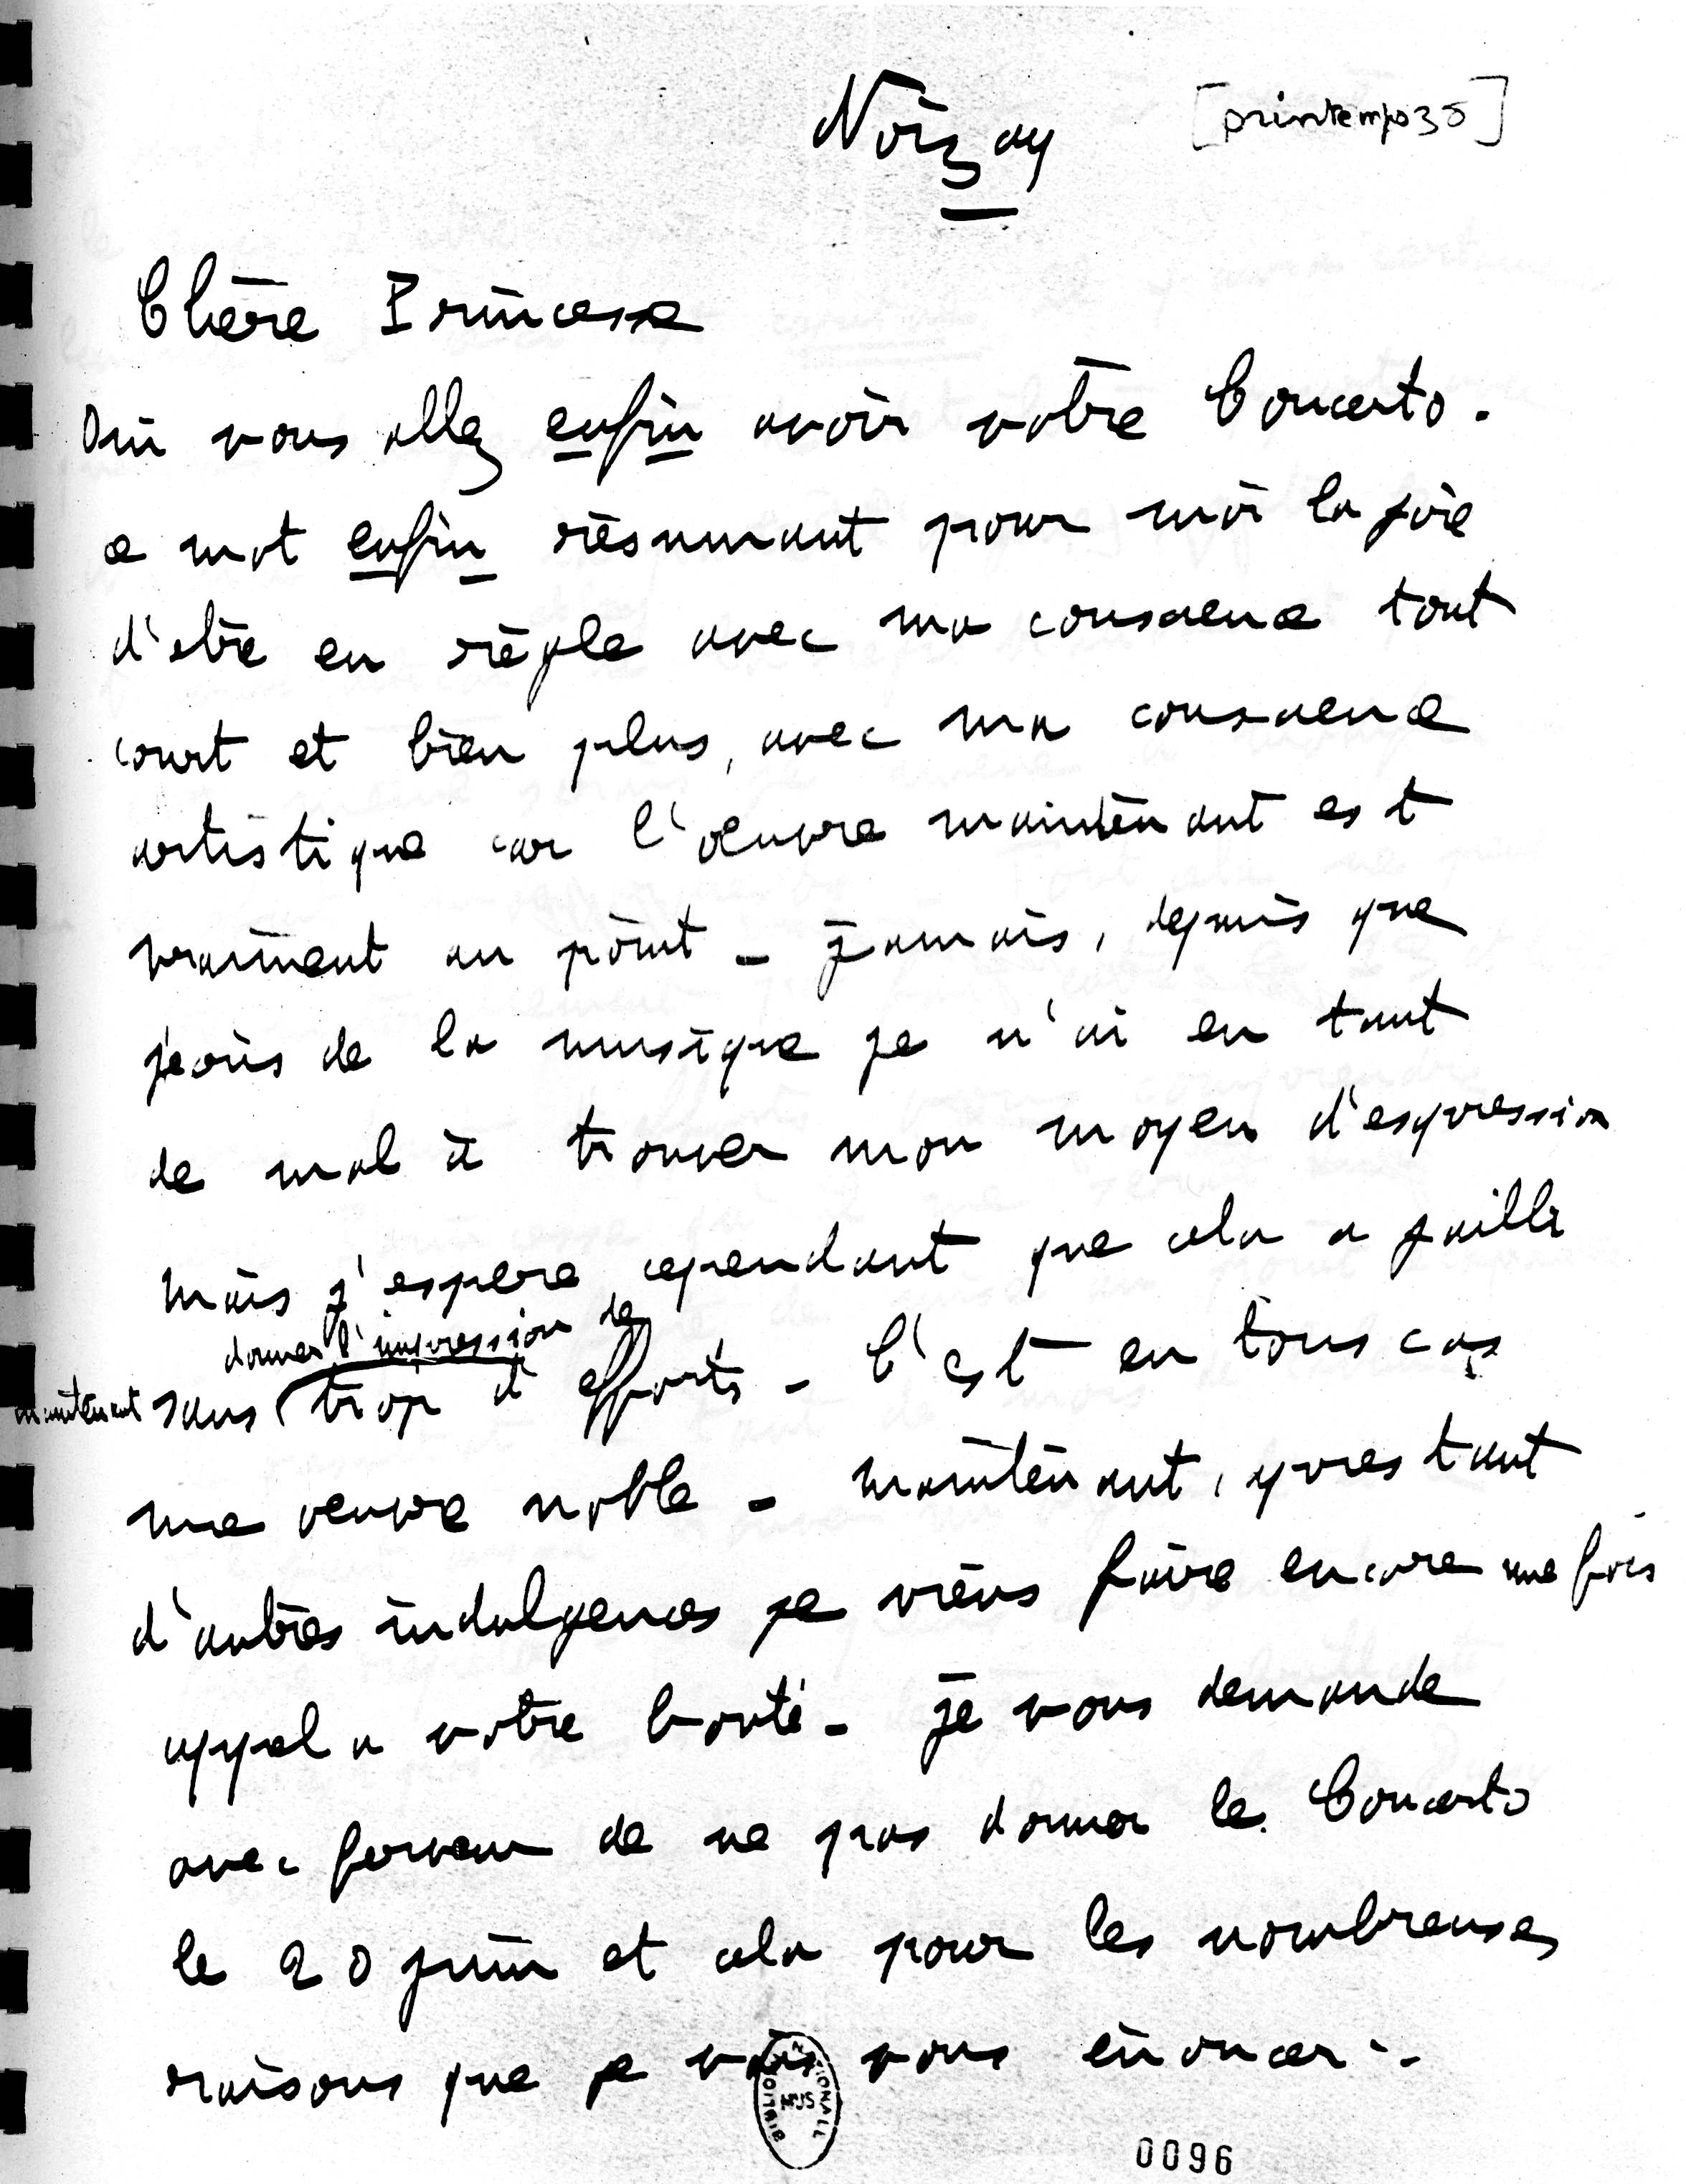 Noizay
[printemps 35]
Chère Princesse
Oui vous allez enfin avoir votre Concerto.
ce mot enfin résumant pour moi la joie
d'etre en règle avec ma conscience tout
court et bien plus, avec ma conscience
artistique car l'oeuvre maintenant est
vraiment au point - jamais, depuis que
j'ecris de la musique je n'ai eu tant
de mal à trouver mon moyen d'expression
mais j'espere cependant que cela a jailli
donner l'impression de
maintenant sans trop d'efforts - C'est en tous cas
une oeuvre noble - maintenant, après tant
d'autres indulgences je viens faire encore une fois
appel a votre bonté - je vous demande
avec ferveur de ne pas donner le Concerto
le 20 juin et cela pour les nombreuses
raisons que je vais vous énoncer -
BIBLIOTHÈQUE NATIONALE
MUS
0096